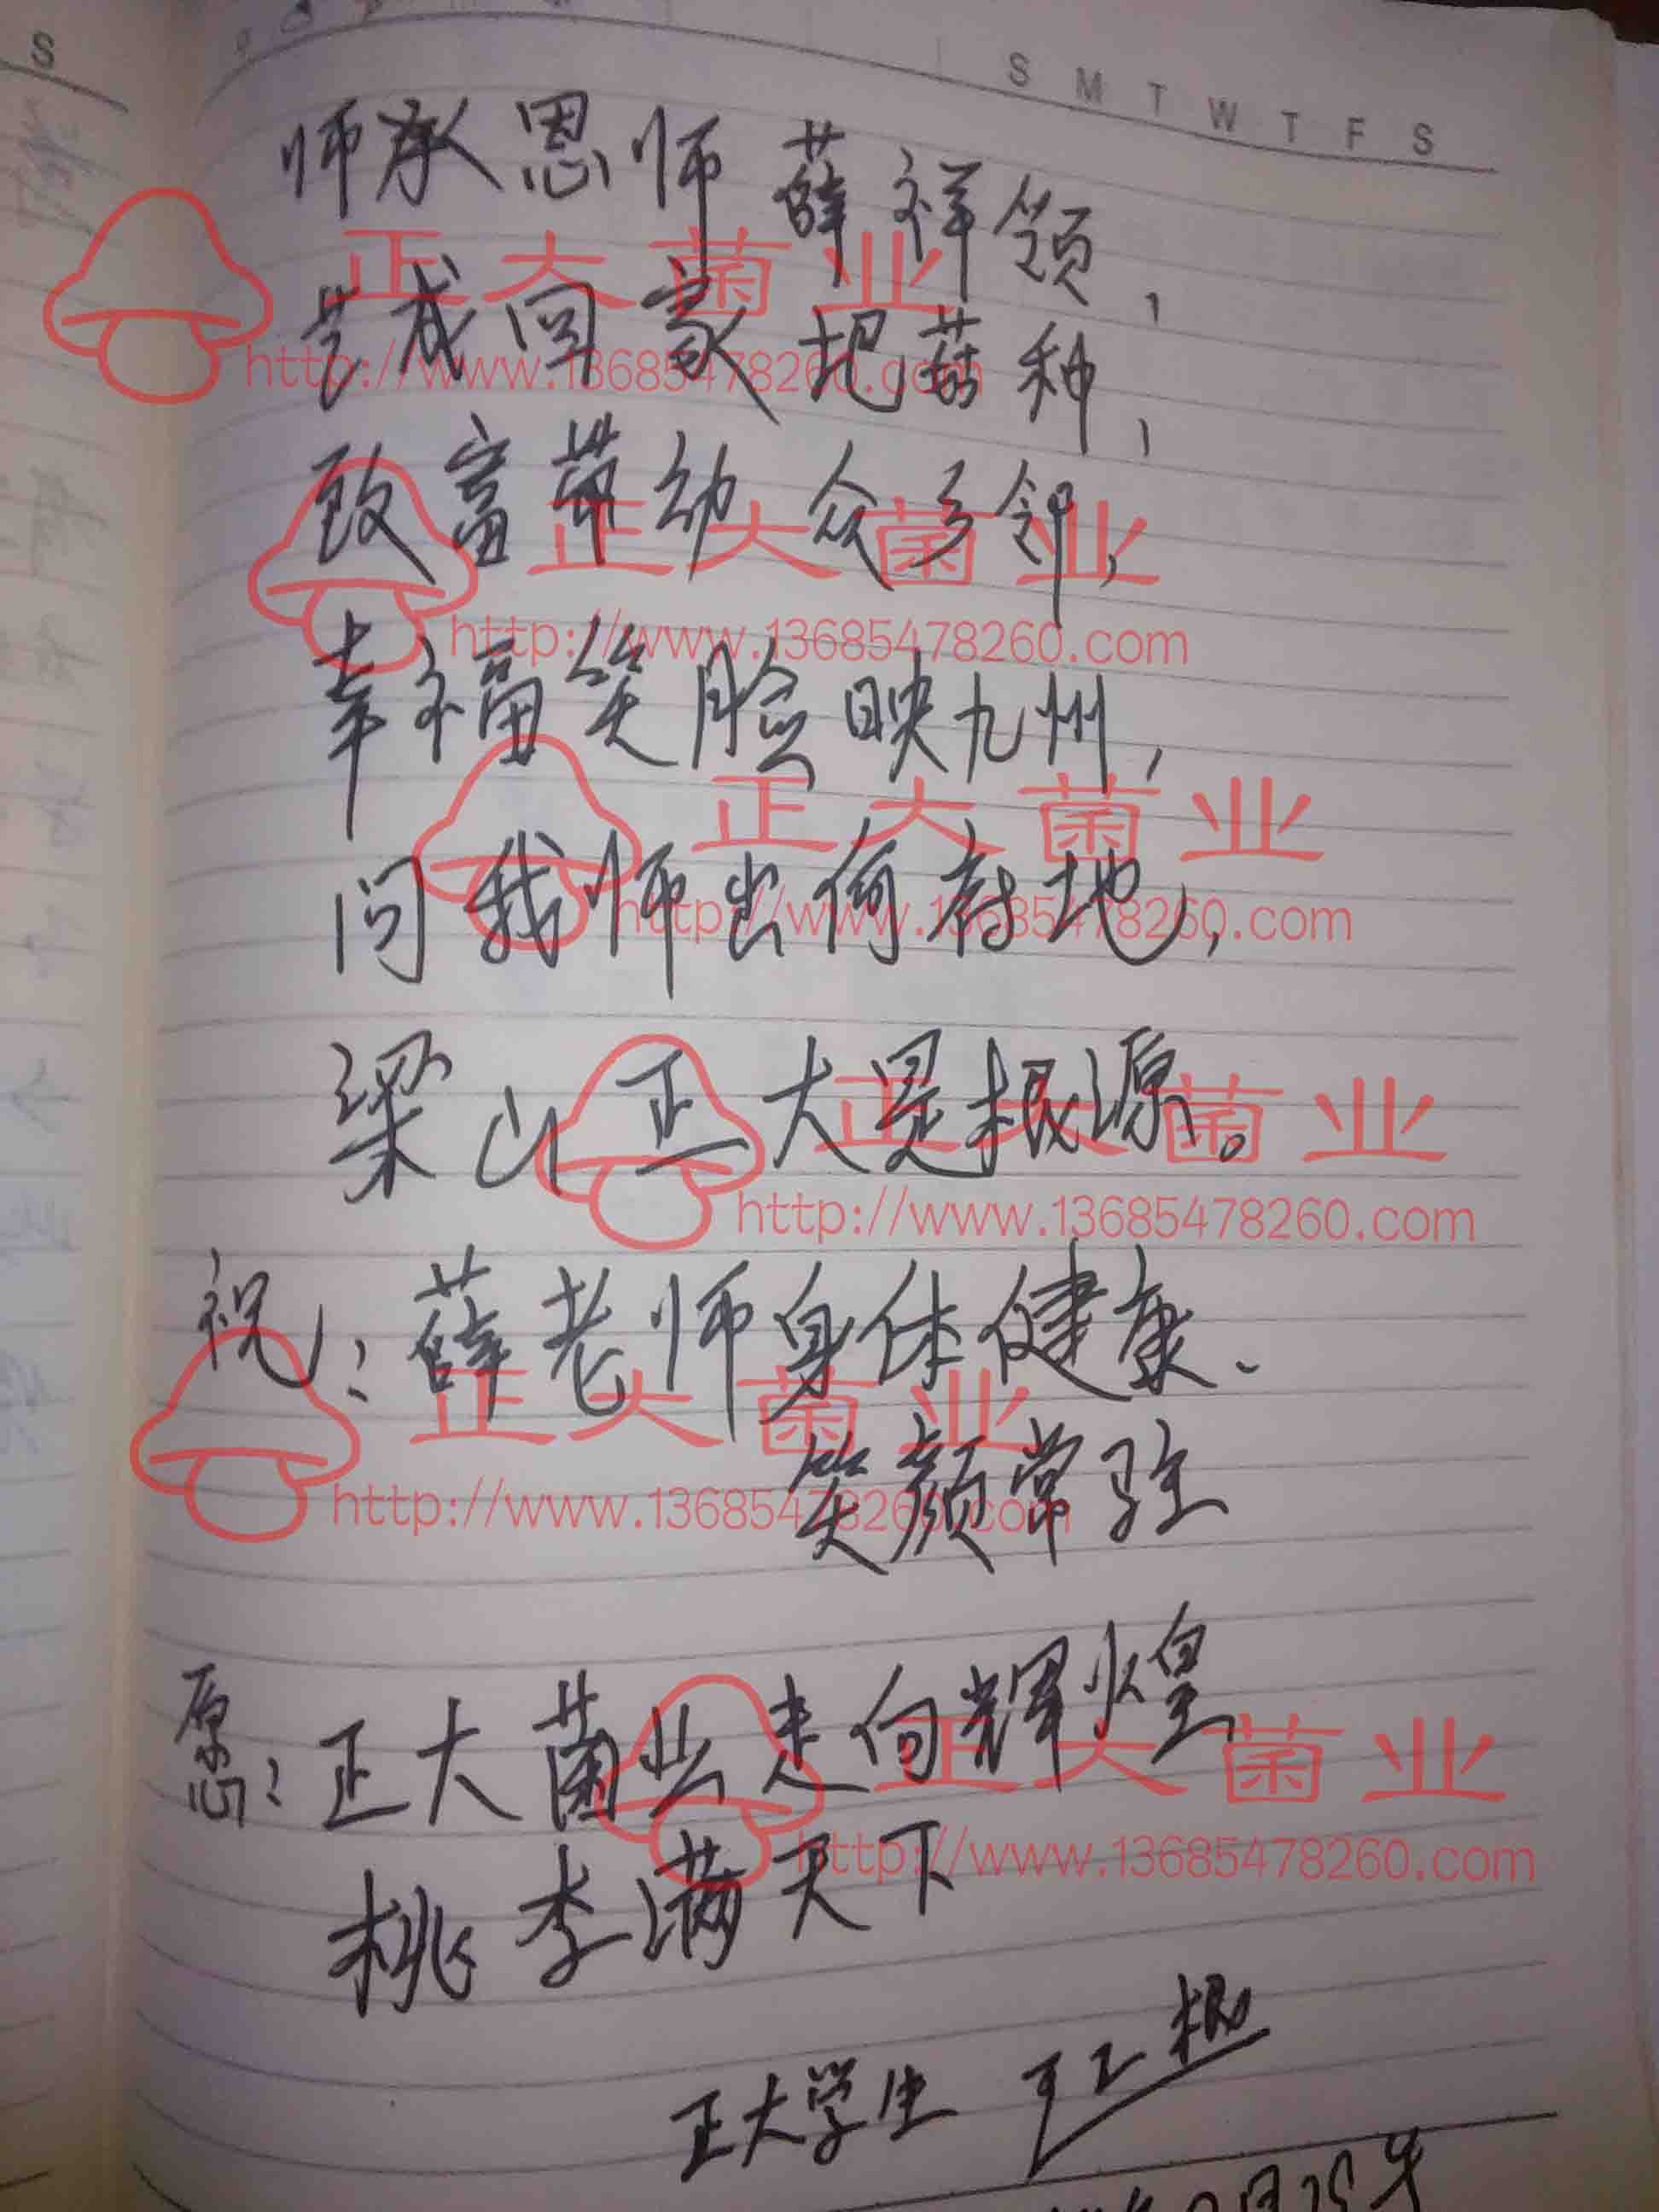 S
S M T W T F S
师承恩师薛祥领，
正大菌业
艺成回家把菇种，
http://www.13685478260.com
致富带动众乡邻，
正大菌业
http://www.13685478260.com
幸福笑脸映九州，
正大菌业
问我师出何府地，
http://www.13685478260.com
梁山正大是根源。
正大菌业
http://www.13685478260.com
祝：薛老师身体健康、
正大菌业
笑颜常驻
http://www.13685478260.com
愿：正大菌业走向辉煌
正大菌业
http://www.13685478260.com
桃李满天下
正大学生